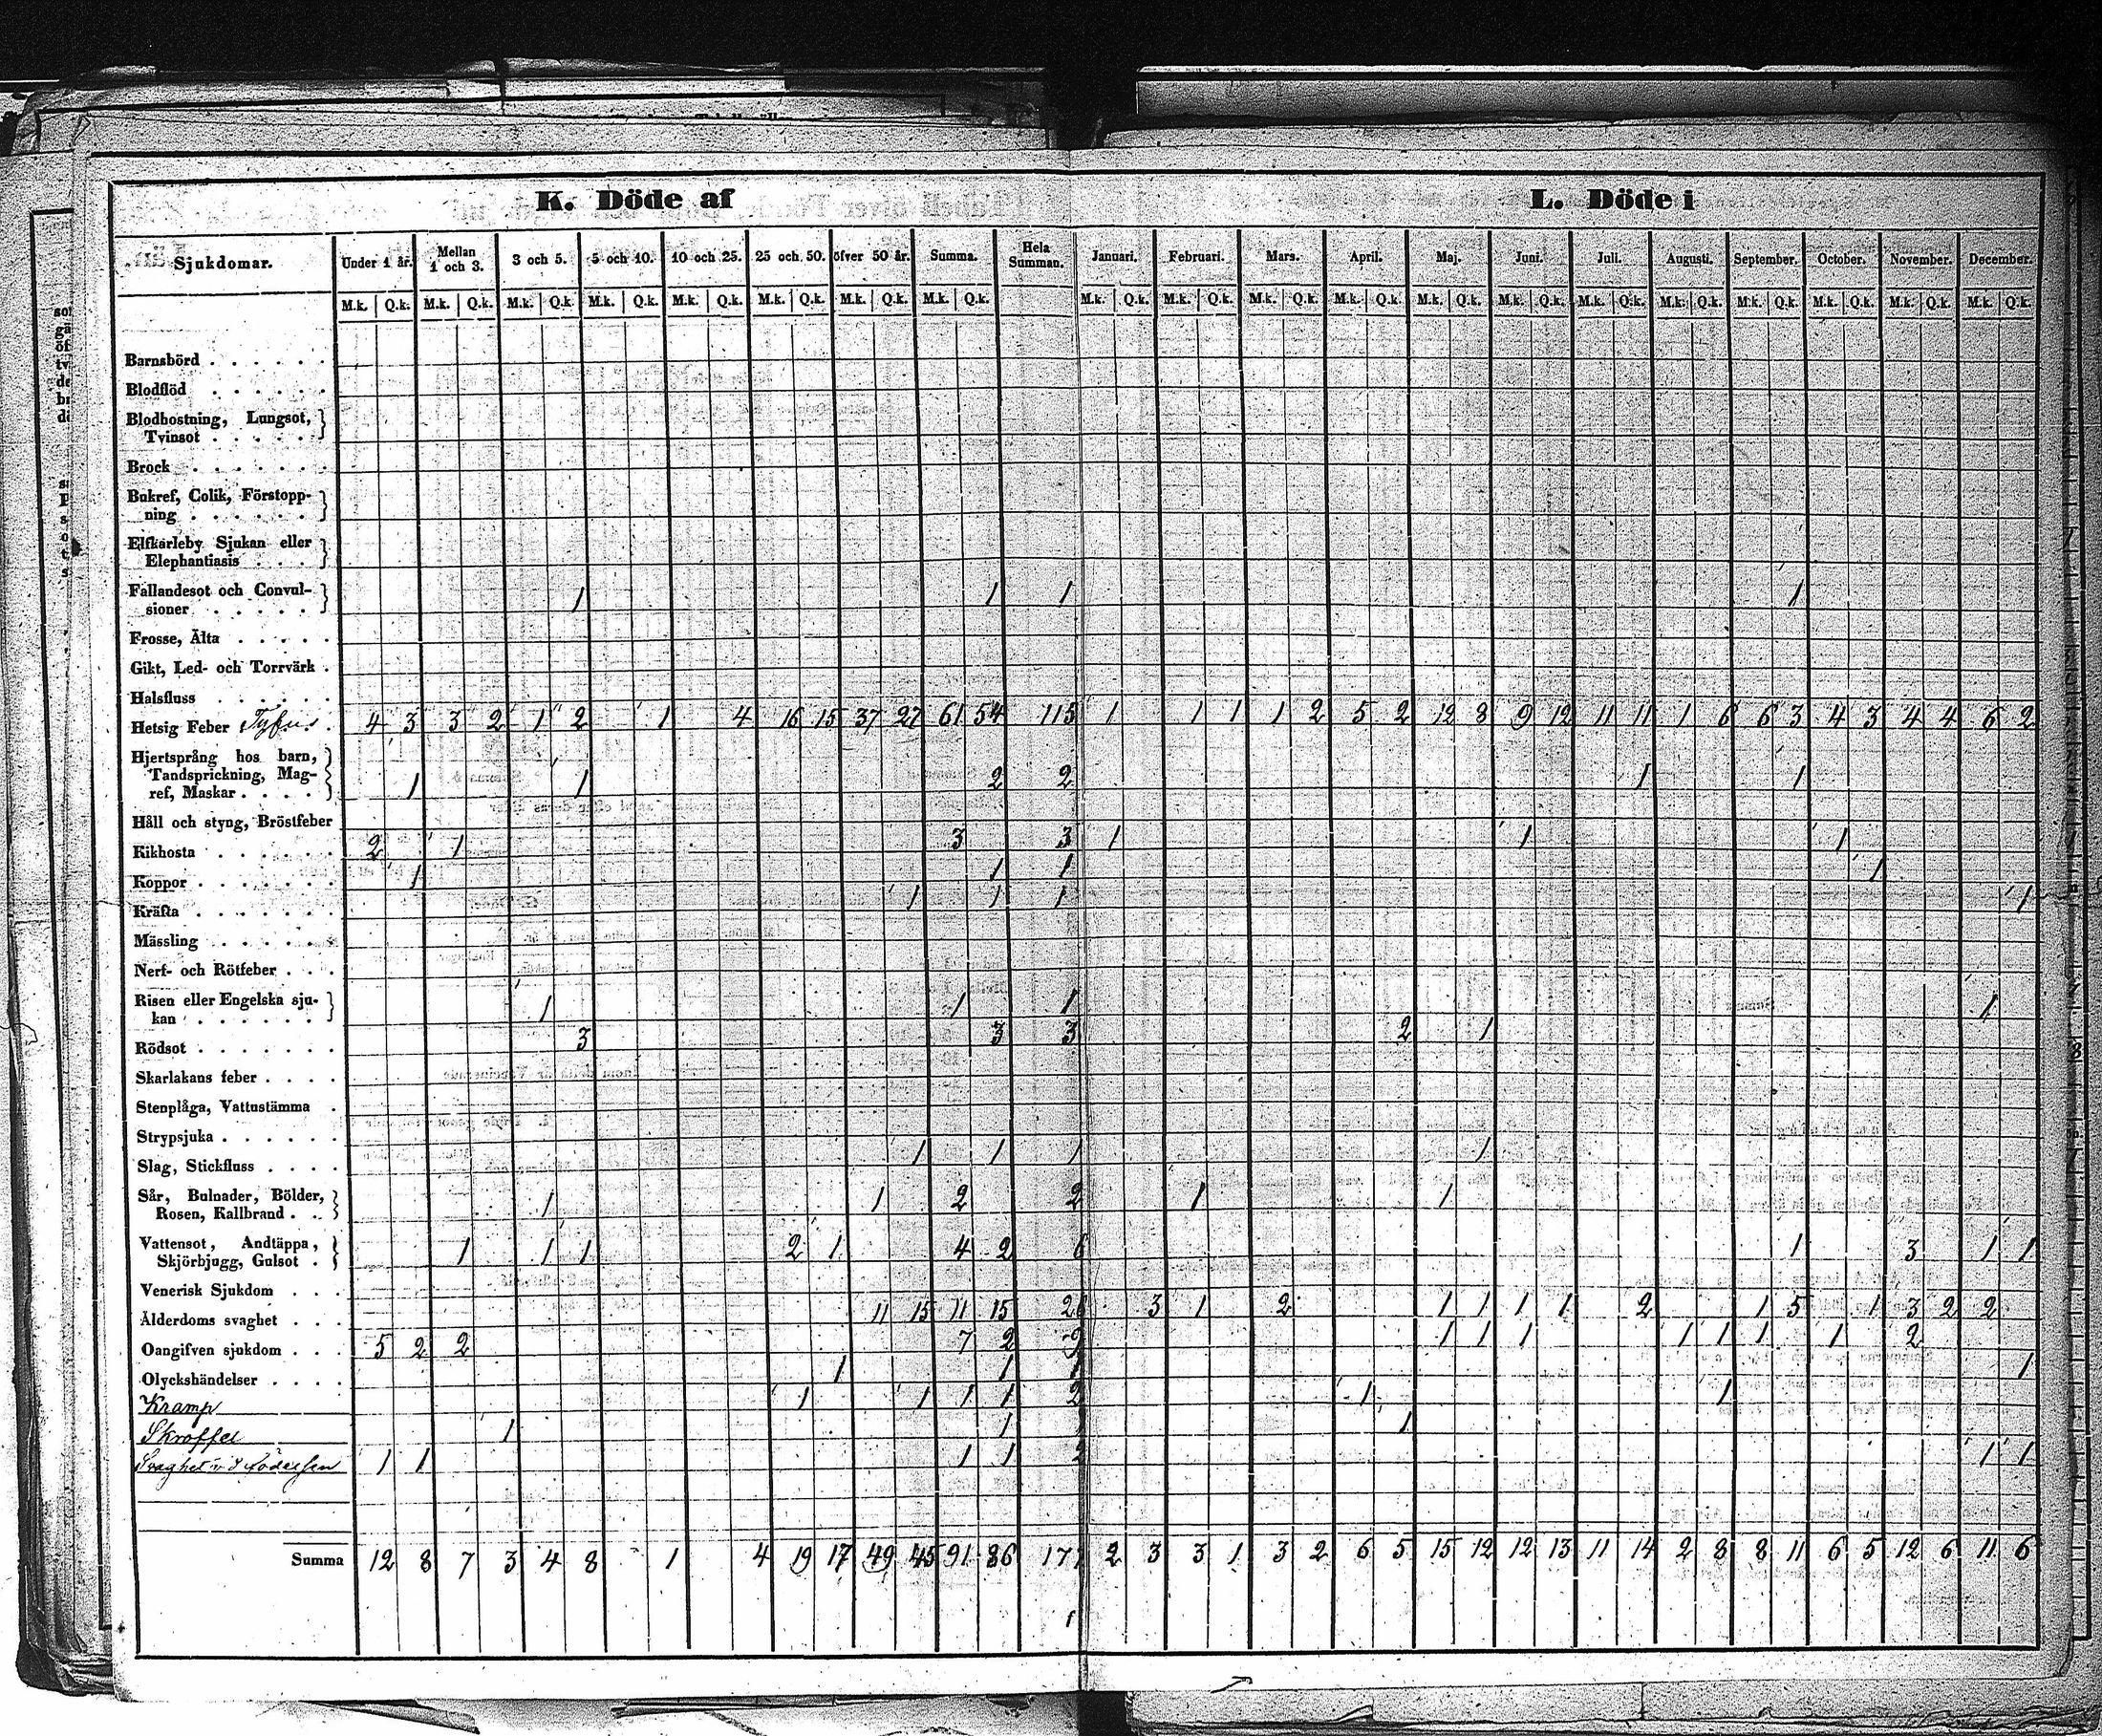 K. Döde af
L. Döde i
Sjukdomar. Under 1 år. Mellan 1 och 3. 3 och 5. 5 och 10. 10 och 25. 25 och 50. öfver 50 år. Summa. Hela Summan. Januari. Februari. Mars. April. Maj. Juni. Juli. Augusti. September. October. November. December.
M.k. Q.k. M.k. Q.k. M.k. Q.k. M.k. Q.k. M.k. Q.k. M.k. Q.k. M.k. Q.k. M.k. Q.k. M.k. Q.k. M.k. Q.k. M.k. Q.k. M.k. Q.k. M.k. Q.k. M.k. Q.k. M.k. Q.k. M.k. Q.k. M.k. Q.k. M.k. Q.k. M.k. Q.k. M.k. Q.k.
Barnsbörd
Blodflöd
Blodhostning, Lungsot,
Tvinsot
Brock
Bukref, Colik, Förstopp-
ning
Elfkarleby Sjukan eller
Elephantiasis
Fallandesot och Convul-
sioner 1 1 1 1
Frosse, Älta
Gikt, Led- och Torrvärk
Halsfluss
Hetsig Feber Tyfus 4 3 3 2 1 2 1 4 16 15 37 27 61 54 115 1 1 1 1 2 5 2 12 8 9 12 11 11 1 6 6 3 4 3 4 4 6 2
Hjertsprång hos barn,
Tandsprickning, Mag-
ref, Maskar 1 1 2 2 1 1
Håll och styng, Bröstfeber
Kikhosta 2 1 3 3 1 1 1
Koppor 1 1 1 1
Kräfta 1 1 1 1
Mässling
Nerf- och Rötfeber
Risen eller Engelska sju-
kan 1 1 1 1
Rödsot 3 3 3 2 1
Skarlakans feber
Stenplåga, Vattustämma
Strypsjuka
Slag, Stickfluss 1 1 1 1
Sår, Bulnader, Bölder,
Rosen, Kallbrand 1 1 2 2 1 1
Vattensot, Andtäppa,
Skjörbjugg, Gulsot 1 1 1 2 1 4 2 6 1 3 1 1
Venerisk Sjukdom
Ålderdoms svaghet 11 15 11 15 26 3 1 2 1 1 1 1 2 1 5 1 3 2 2
Oangifven sjukdom 5 2 2 7 2 9 1 1 1 1 1 1 1 2
Olyckshändelser 1 1 1 1
Kramp 1 1 1 1 2 1 1
Skroffel 1 1 1 1
Svaghet v. d födelsen 1 1 1 1 2 1 1
Summa 12 8 7 3 4 8 1 4 19 17 49 45 91 86 177 2 3 3 1 3 2 6 5 15 12 12 13 11 14 2 8 8 11 6 5 12 6 11 6